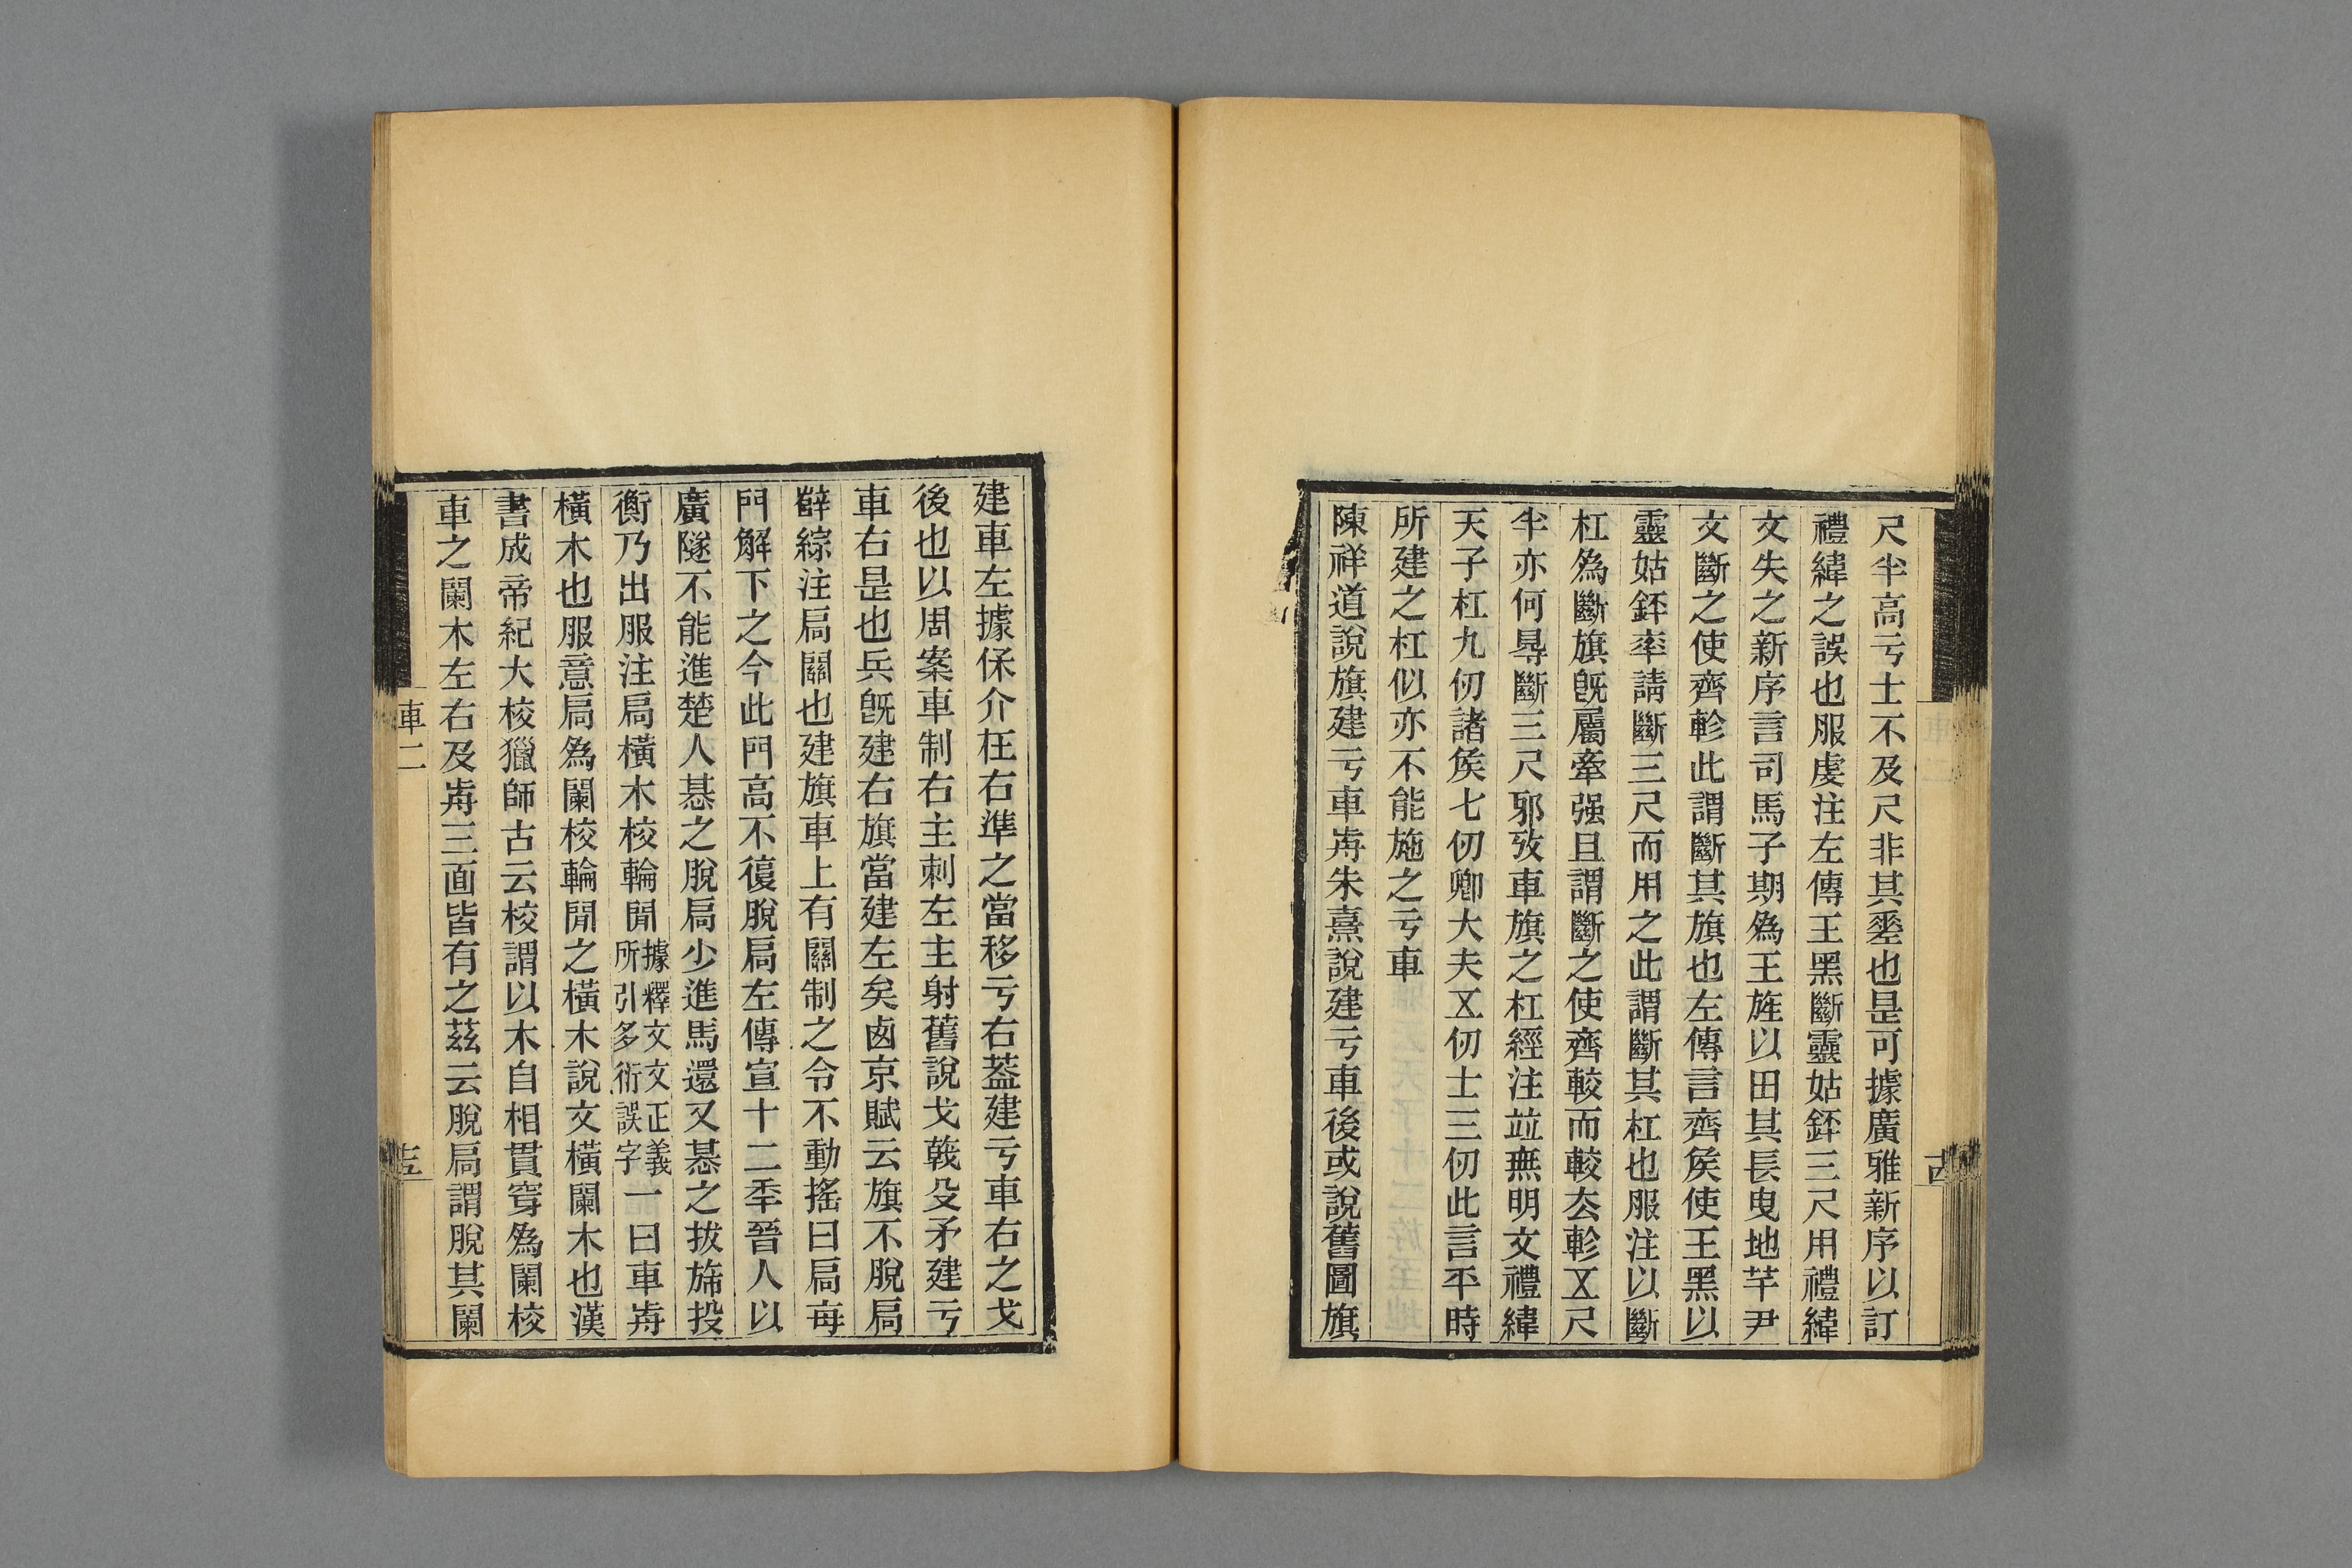 尺半高亏士不及尺非其㘸也是可據廣雅新序以訂
禮緯之誤也服虔注左傳王黑斷靈姑銔三尺用禮緯
文失之新序言司馬子期爲王旌以田其長曳地芊尹
文斷之使齊軫此謂斷其旗也左傳言齊矦使王黑以
靈姑銔率請斷三尺而用之此謂斷其杠也服注以斷
杠爲斷旗旣屬牽强且謂斷之使齊較而較厺軫㐅尺
半亦何㝵斷三尺邪攷車旗之杠經注竝無明文禮緯
天子杠九仞諸矦七仞卿大夫㐅仞士三仞此言平時
所建之杠似亦不能施之亏車
陳祥道說旗建亏車歬朱熹說建亏車後或說舊圖旗
建車左據保介在右準之當移亏右葢建亏車右之戈
後也以周案車制右主刺左主射舊說戈戟殳矛建亏
車右是也兵旣建右旗當建左矣卤京賦云旗不脫扃
薛綜注扃關也建旗車上有關制之令不動搖曰扃每
門解下之今此門高不復脫扃左傳宣十二秊晉人以
廣隧不能進楚人惎之脫扃少進馬還又惎之拔旆投
衡乃出服注扃橫木校輪閒據釋文文正義所引多衍誤字一曰車歬
橫木也服意扃爲闌校輪閒之橫木說文橫闌木也漢
書成帝紀大校獵師古云校謂以木自相貫穿爲闌校
車之闌木左右及歬三面皆有之茲云脫扃謂脫其闌
車二